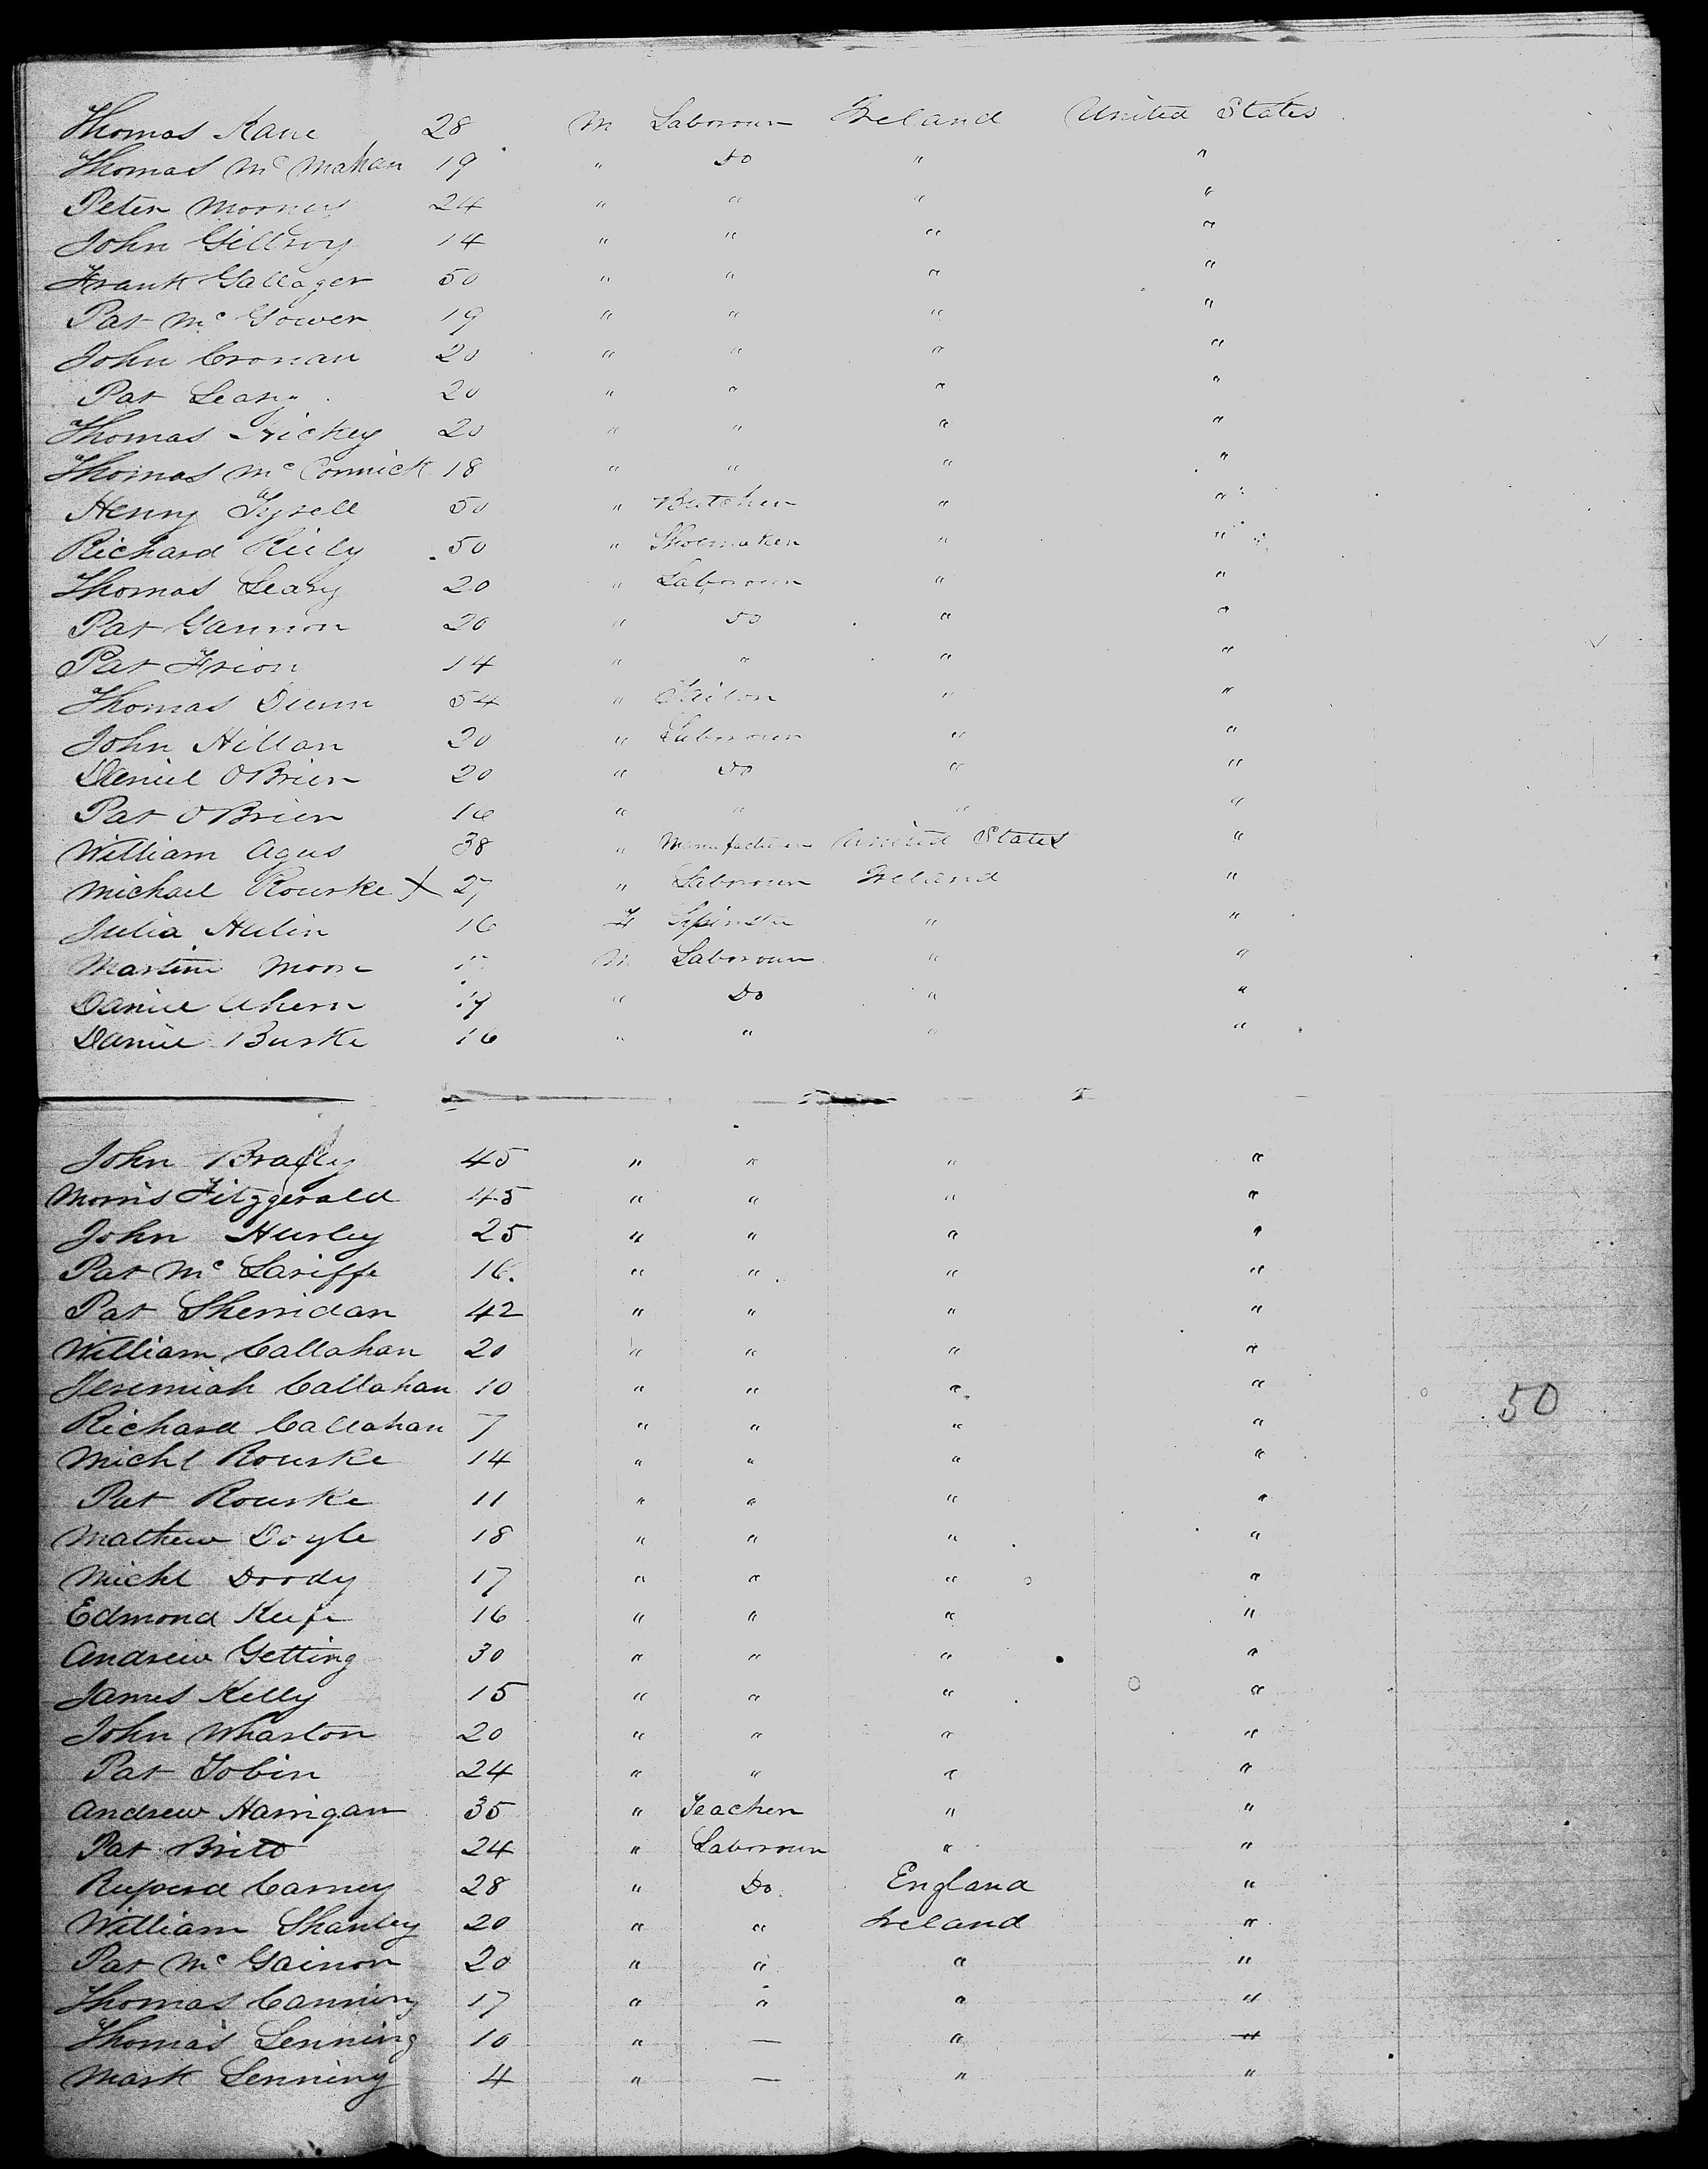 Thomas Kane 28 M Labourer Ireland United States
Thomas Mc Mahan 19 " Do " "
Peter Mooney 24 " " " "
John Gillroy 14 " " " "
Frank Gallager 50 " " " "
Pat Mc Gower 19 " " " "
John Cronan 20 " " " "
Pat Leary 20 " " " "
Thomas Hickey 20 " " " "
Thomas Mc Cormick 18 " " " "
Henry Tyrell 50 " Butcher " "
Richard Riely 50 " Shoemaker " "
Thomas Leary 20 " Labourer " "
Pat Gannon 20 " Do " "
Pat Frion 14 " " " "
Thomas Dunn 54 " Tailor " "
John Hillan 20 " Labourer " "
Daniel O Brien 20 " Do " "
Pat O Brien 16 " " " "
William Agus 38 " Manufacturer United States "
Michael Rourke X 27 " Labourer Ireland "
Julia Hulin 16 F Spinster " "
Martin Moore M Labourer " "
Daniel Ahern 19 " Do " "
Daniel Burke 16 " " " "
John Bradley 45 " " " "
Morris Fitzgerald 45 " " " "
John Hurley 25 " " " "
Pat Mc Lariffe 16. " " " "
Pat Sherridan 42 " " " "
William Callahan 20 " " " "
Jeremiah Callahan 10 " " " " 50
Richard Callahan 7 " " " "
Michl Rourke 14 " " " "
Pat Rourke 11 " " " "
Mathew Doyle 18 " " " "
Michl Doody 17 " " " "
Edmond Keefe 16 " " " "
Andrew Getting 30 " " " "
James Kelly 15 " " " "
John Wharton 20 " " " "
Pat Tobin 24 " " " "
Andrew Harrigan 35 " Teacher " "
Pat Britt 24 " Labourer " "
Carney 28 " Do England "
William Shanley 20 " " Ireland "
Pat Mc Gainor 20 " " " "
Thomas Canning 17 " " " "
Thomas Lenning 10 " — " "
Mark Lenning 4 " — " "